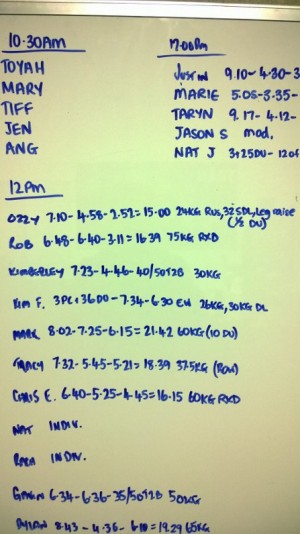 10.30AM
TOYAH
MARY
TIFF
JEN
ANG
Justin 9.10-4.30-3
MARIE 5.05-3.35-
TARYN 9.17-4.12-
JASON S mod.
NAT J 3+25DU-
12Pm
OZZY 7.10-4.58-2.52=15.00 24KG Rus, 32.5DL, Leg raise
(½ DU)
ROB 6.48-6.40-3.11=16.39 75KG RXD
KIMBERLEY 7.23-4.46-40/50T2B 30KG
KIM F. 7.34-6.30 26KG, 30KG DL
MARK 8.02-7.25-6.15=21.42 60KG (10 DU)
TRACY 7.32-5.45-5.21=18.39 37.5KG (Row)
CHRIS E. 6.40-5.25-4.45=16.15 60KG RXD
NAT INDIV.
INDIV.
GAVIN 6.34-6.36-35/50T2B 50KG
DYLAN 8.43-4.36-6.10=19.29 65KG